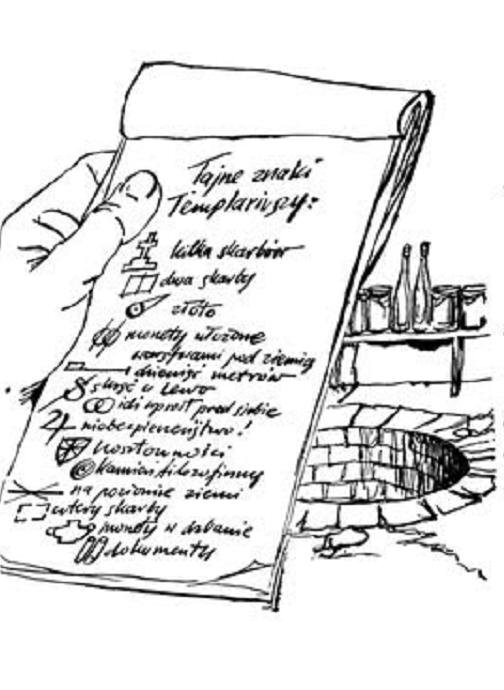 Tajne znaki
Templariuszy:
kilka skarbów
dwa skarby
złoto
monety ułożone
warstwami pod ziemią
dziewięć metrów
skręć w lewo
idź wprost przed siebie
niebezpieczeństwo!
kosztowności
kamień filozoficzny
na poziomie ziemi
cztery skarby
monety w dzbanie
dokumenty